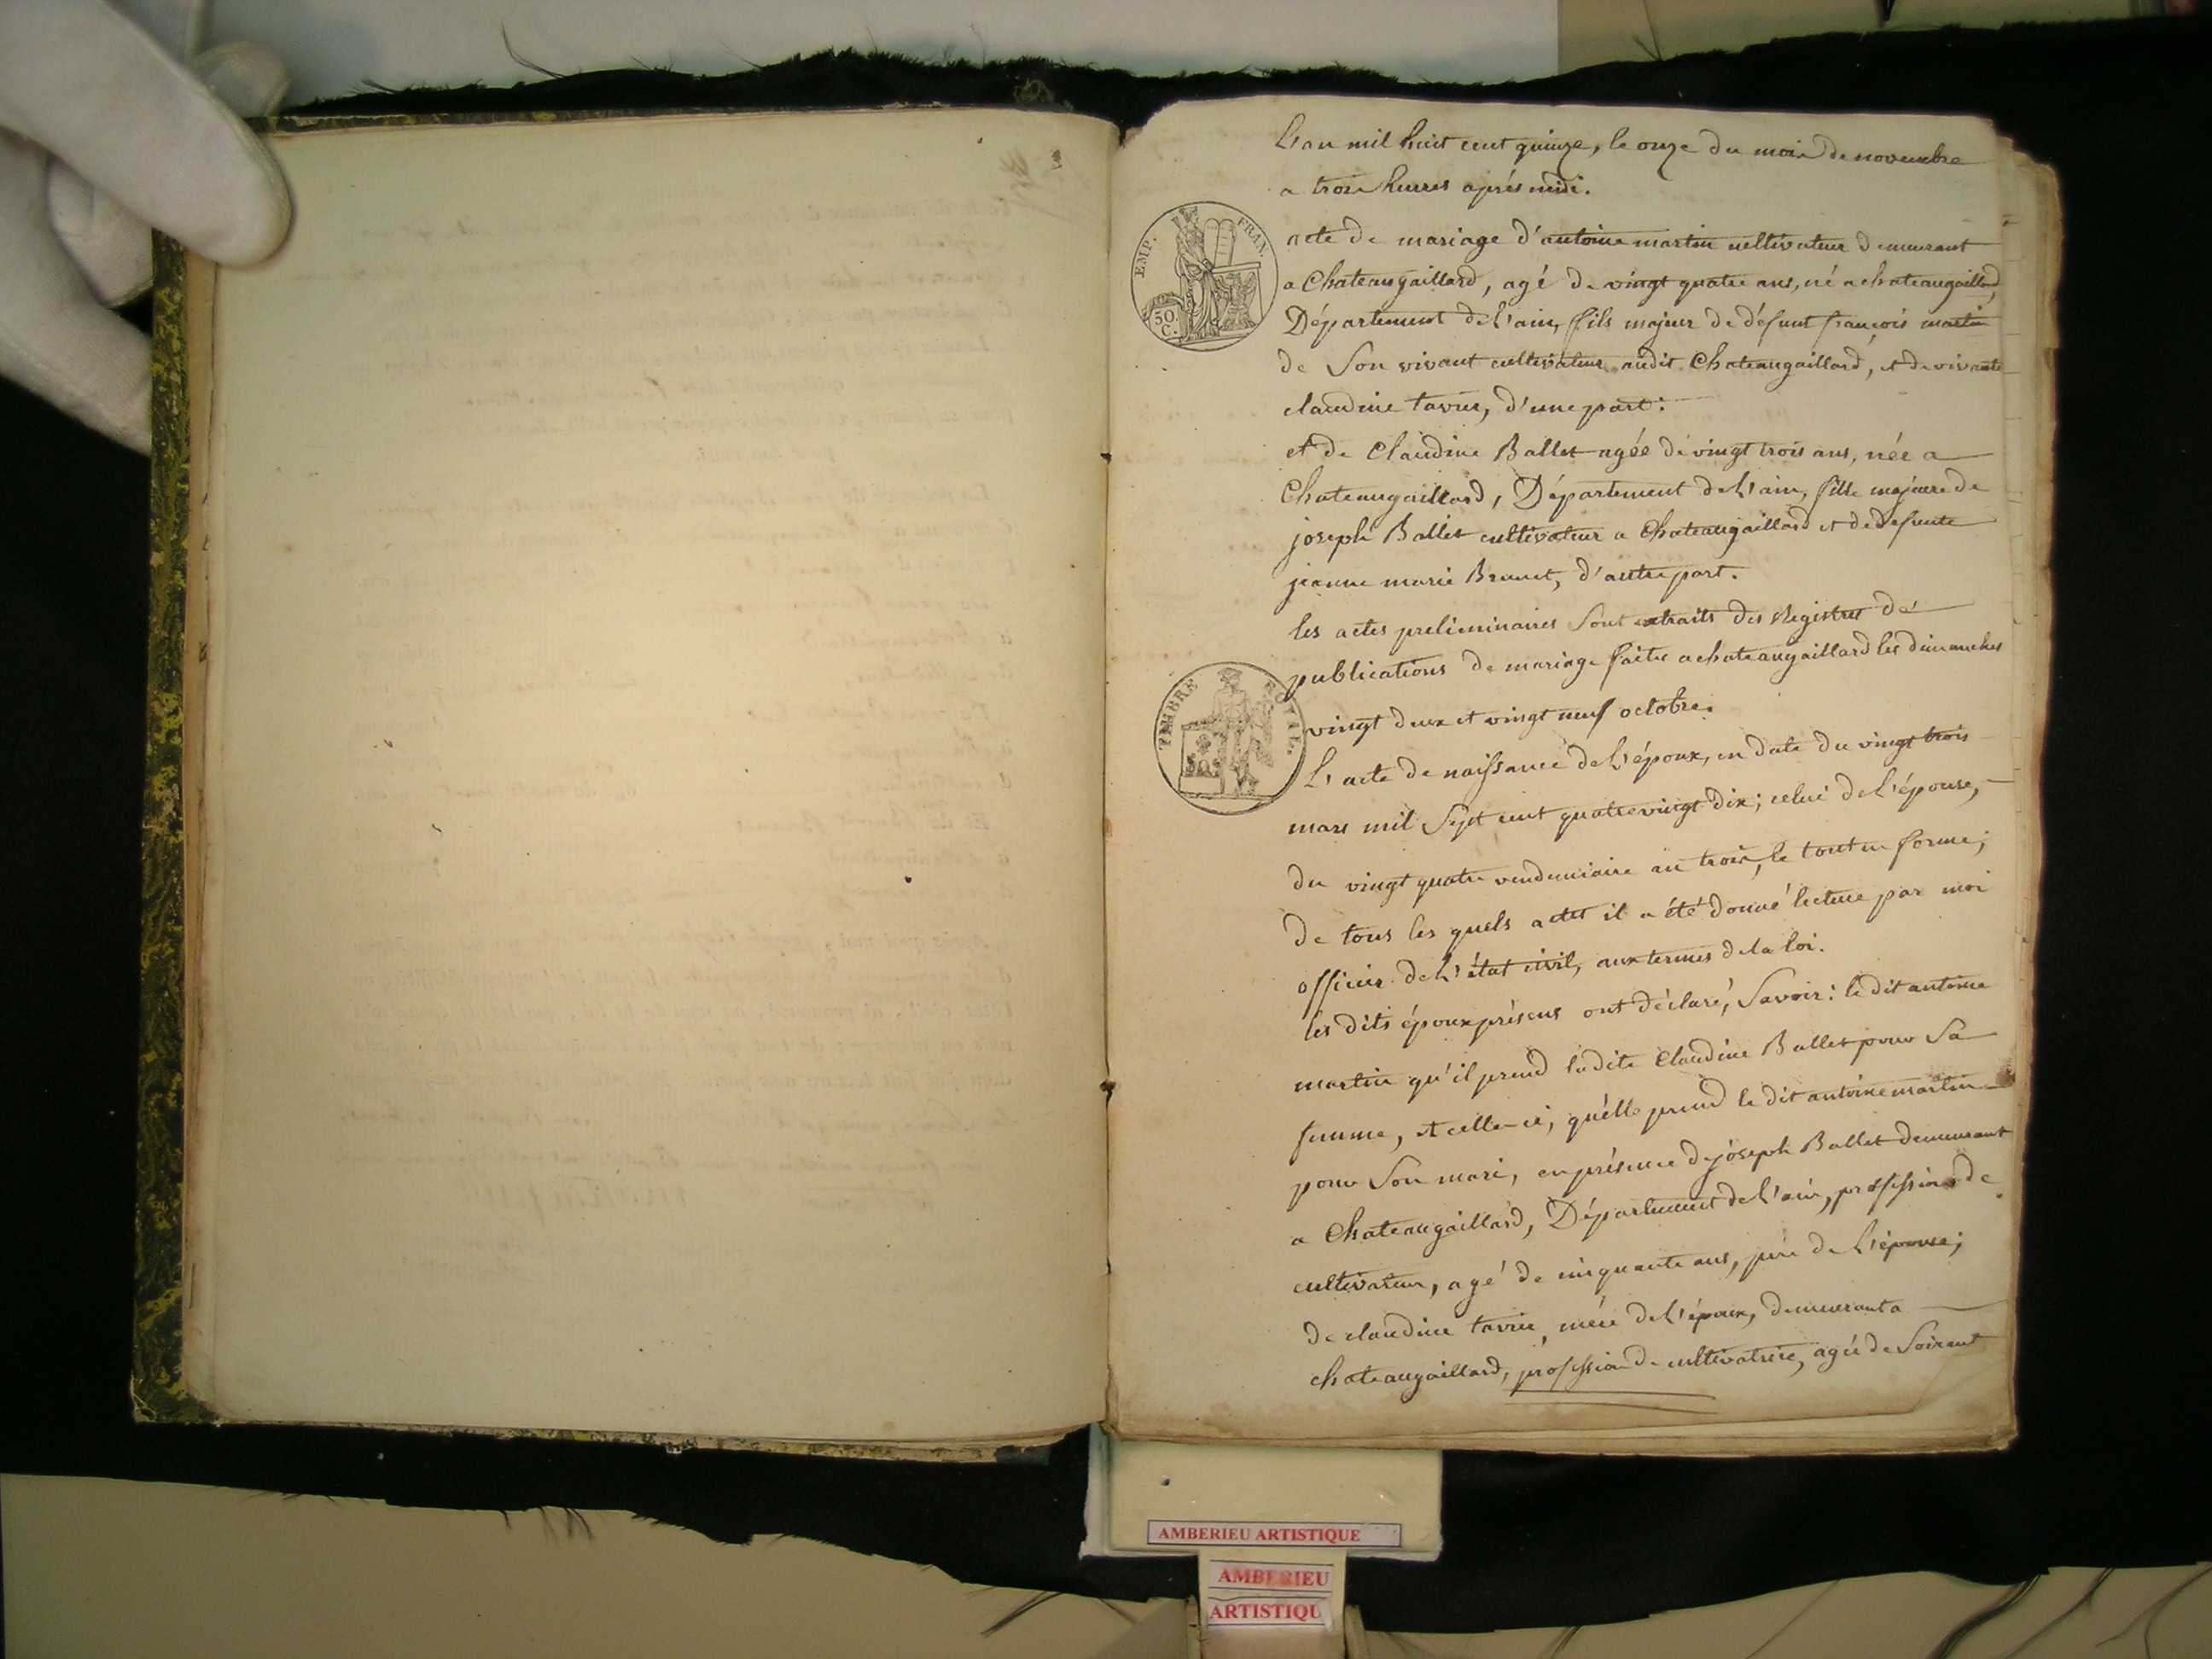 L'an mil huit cent quinze, le onze du mois de novembre
a trois heures après midi.
EMP. FRAN.
50 C.
acte de mariage d'antoine martin cultivateur demeurant
a Chateaugaillard, agé de vingt quatre ans, né a chateaugaillard,
Département de l'ain, fils majeur de défunt françois martin
de Son vivant cultivateur audit Chateaugaillard, et de vivante
claudine tavier, d'une part:
et de Claudine Ballet agée de vingt trois ans, née a
Chateaugaillard, Département de l'ain, fille majeure de
joseph Ballet cultivateur a Chateaugaillard et de defunte
jeanne marie Brunet, d'autre part.
les actes preliminaires Sont extraits des Registres de
publications de mariage faites a chateaugaillard les dimanches
TIMBRE ROYAL.
vingt deux et vingt neuf octobre.
L'acte de naissance de l'époux, en date du vingt trois
mars mil Sept cent quatrevingt dix; celui de l'épouse,
du vingt quatre vendemiaire an trois, le tout en forme;
De tous les quels actes il a été donné lecture par moi
officier de l'état civil, aux termes de la loi.
les dits époux présens ont déclaré, Savoir: le dit antoine
martin qu'il prend ladite Claudine Ballet pour Sa
femme, et celle-ci, qu'elle prend le dit antoine martin
pour Son mari, en présence de joseph Ballet demeurant
a Chateaugaillard, Département de l'ain, profession de
cultivateur, agé de cinquante ans, père de l'épouse;
De claudine tavier, mère de l'époux, demeurant a
chateaugaillard, profession de cultivatrice, agée de Soixant
AMBERIEU ARTISTIQUE
AMBERIEU
ARTISTIQU